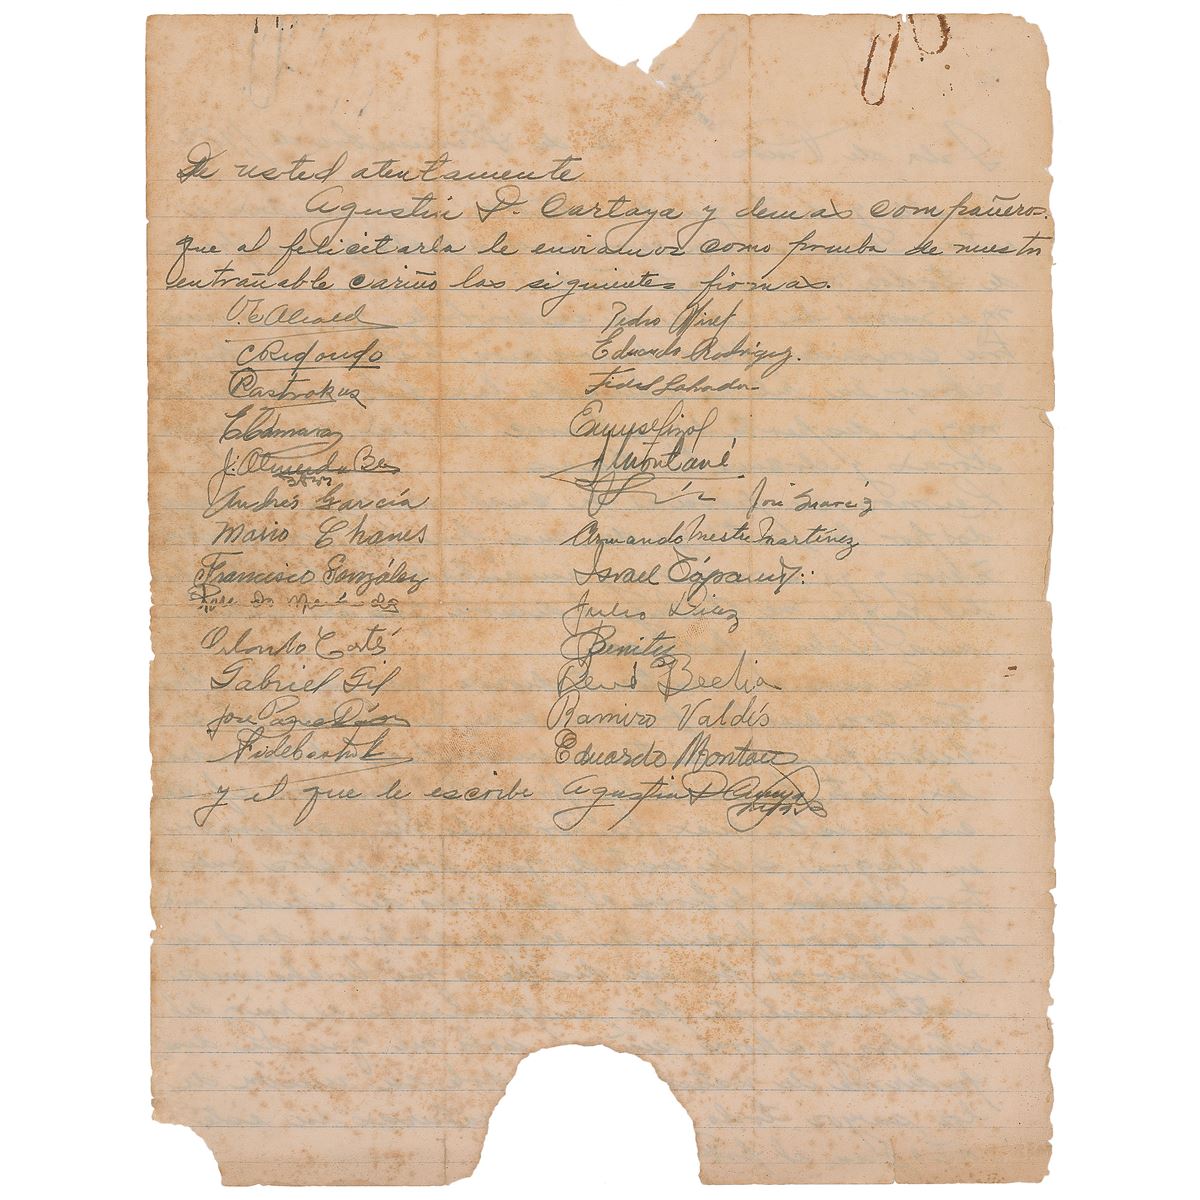 De usted atentamente
Agustin D. Cartaya y demas compañeros.
que al felicitarla le enviamos como prueba de nuestro
entrañable cariño las siguientes firmas.
Pedro Miret
CRedondo Eduardo Rodriguez.
Fidel Labrador
ECámara Ennyselfizol
J. Almeida Bo Montané
Andrés García José Suarez
Mario Chanes Armando Mestre Martínez
Francisco González Israel Tápanes
Julio Diaz
Orlando Cortés Benitez
Gabriel Gil René Bedia
Jose Ponce Díaz Ramiro Valdés
Eduardo Montano
y el que le escribe Agustin D Cartaya